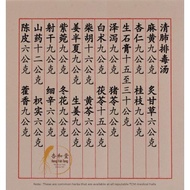 清肺排毒汤
麻黄九公克 炙甘草六公克
杏仁九公克 桂枝九公克
生石膏十五至三十公克
泽泻九公克 猪苓九公克
白术九公克 茯苓十五公克
柴胡十六公克 黄芩六公克
姜半夏九公克 生姜九公克
紫菀九公克 冬花九公克
射干九公克 细辛六公克
山药十二公克 枳实六公克
陈皮六公克 藿香九公克
杏和堂